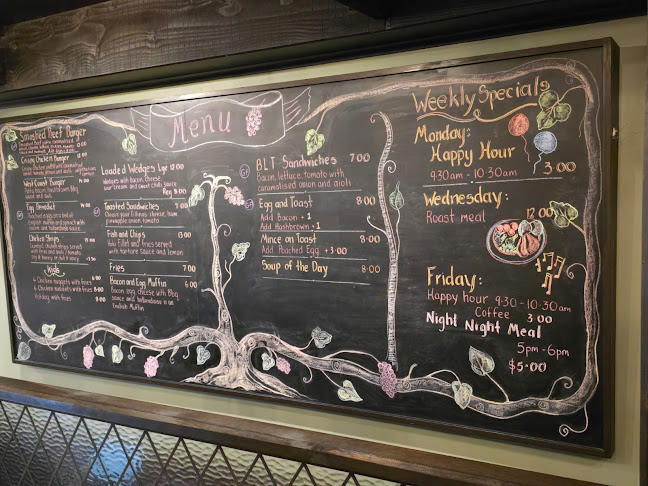 Menu
Smashed Beef Burger
Crispy Chicken Burger
West Coast Burger
Bacon, hashbrown, BBQ
Egg Benedict
Poached eggs on a bed of
English muffin and spinach with
bacon and hollandaise sauce
Chicken Strips
Kids
6 Chicken nuggets with fries
6 Chicken nuggets with fries 8.00
Hotdog with fries
Loaded Wedges Lge 12.00
Wedges with bacon, cheese
sour cream and sweet chilli sauce
Reg 8.00
Toasted Sandwiches 7.00
Choice your fillings- cheese, ham
pineapple, onion, tomato
Fish and Chips 13.00
Hoki Fillet and fries served
with tartare sauce and lemon
Fries 7.00
Bacon and Egg Muffin 6.00
Bacon, egg, cheese with BBQ
sauce and hollandaise in an
English Muffin
BLT Sandwiches 7.00
Bacon, lettuce, tomato with
caramalised onion and aioli
Egg and Toast 8.00
Add Bacon + 1
Add Hashbrown + 1
Mince on Toast 8.00
Add Poached Egg + 3.00
Soup of the Day 8.00
Weekly Specials
Monday:
Happy Hour
9:30am - 10:30am 3.00
Wednesday:
Roast meal 12.00
Friday:
Happy hour 9:30 - 10:30am
Coffee 3.00
Night Night Meal
5pm - 6pm
$5.00